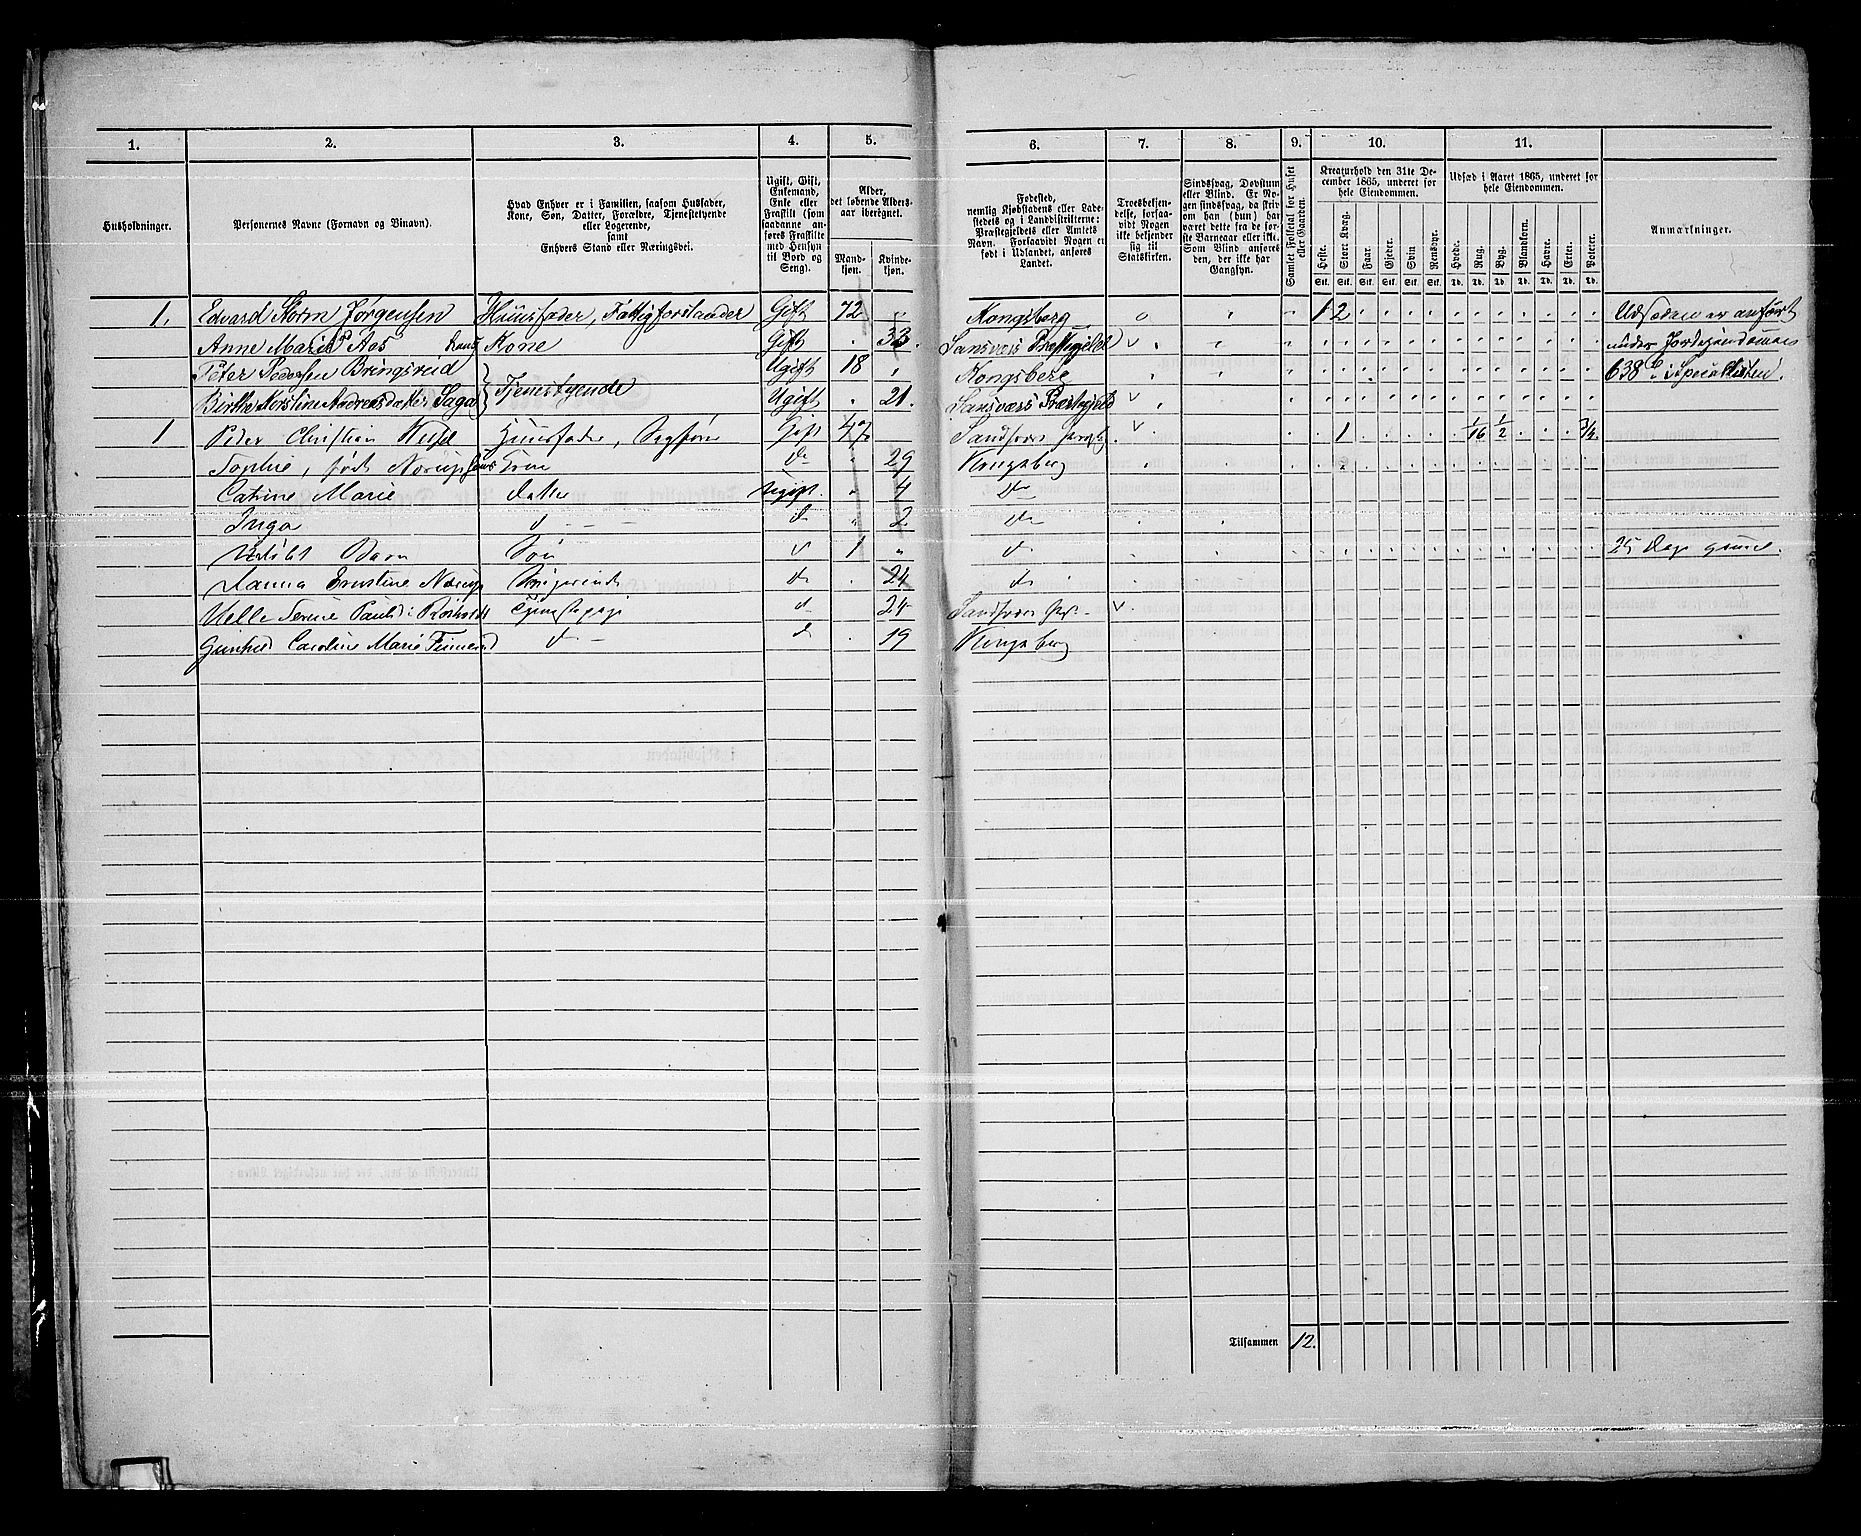 1. 2. 3. 4. 5. 6. 7. 8. 9. 10. 11.
Husholdninger.
Personernes Navne (Fornavn og Binavn).
Hvad Enhver er i Familien, saasom Husfader,
Kone, Søn, Datter, Forældre, Tjenestetyende
eller Logerende,
samt
Enhvers Stand eller Næringsvei.
Ugift, Gift,
Enkemand,
Enke eller
Fraskilt (som
saadanne an-
føres Fraskilte
med Hensyn
til Bord og
Seng).
Alder,
det løbende Alders-
aar iberegnet.
Mand-
kjøn.
Kvinde-
kjøn.
Fødested,
nemlig Kjøbstadens eller Lade-
stedets og i Landdistrikterne:
Præstegjeldets eller Amtets
Navn. Forsaavidt Nogen er
født i Udlandet, anføres
Landet.
Troesbekjen-
delse, forsaa-
vidt Nogen
ikke bekjender
sig til
Statskirken.
Sindssvag, Døvstum
eller Blind. Er No-
gen sindssvag, da skriv
om han (hun) har
været dette fra de før-
ste Barneaar eller ikke.
Som Blind anføres
den, der ikke har
Gangsyn.
Samlet Folketal for Huset
eller Gaarden.
Kreaturhold den 31te De-
cember 1865, underet for
hele Eiendommen.
Heste. Stort Kvæg. Faar. Gjeder. Svin Rensdyr.
Stk. Stk. Stk. Stk. Stk. Stk.
Udsæd i Aaret 1865, underet for
hele Eiendommen.
Hvede. Rug. Byg. Blandkorn. Havre. Erter. Poteter.
Td. Td. Td. Td. Td. Td. Td.
Anmærkninger.
1. Edvard Storm Jørgensen Huusfader, Fattigforstander Gift 72 " Kongsberg 1 2 Udsæden er anført
Anne Marie Aas hans Kone Gift 33. Sansværs Præstegjeld under Jordejendommen
Peter Pedersen Bringsreid Ugift 18 Kongsberg 638 i Speciallisten.
Birthe Kerstine Andreasdatter Saga Tjenestgende Ugift 21. Sansværs Præstegjeld
1 Peder Christian Huusfader, Sagfører Gift 47 Sandsvær 1 1/16 1/2 3/4.
Sophie, født Norup hans Kone do 29 Kongsberg
Catrine Marie datter Ugift. 4 do
Inga d — — — d " 2 do
Udøbt Barn Søn d 1 " d 25 Dage gammel.
Ernstine Norup d 24 d
Helle Serine d 24 Sandsvær
Gunhild Caroline Marie d — d 19 Kongsberg
Tilsammen 12.